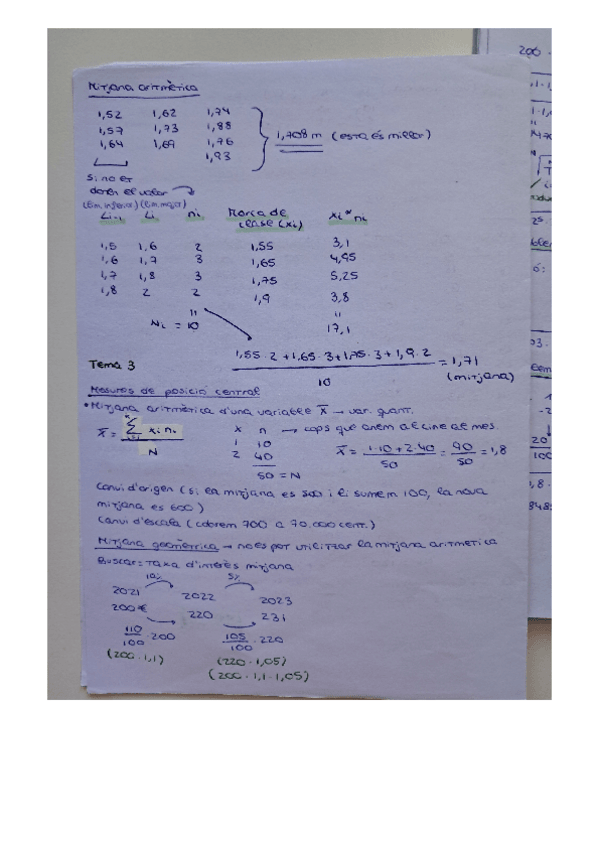 Mitjana aritmètica
1,52 1,62 1,74
1,57 1,73 1,88
1,64 1,69 1,76
1,93
1,708 m (esta és millor)
Si no et
donen el valor
(lim. inferior) (lim. major)
Li-1 Li ni Marca de clase (xi) xi * ni
1,5 1,6 2 1,55 3,1
1,6 1,7 3 1,65 4,95
1,7 1,8 3 1,75 5,25
1,8 2 2 1,9 3,8
Ni = 10 17,1
1,55·2+1,65·3+1,75·3+1,9·2 / 10 = 1,71
(mitjana)
Tema 3
Mesures de posició central
•Mitjana aritmètica d'una variable x̄ → var. quant.
x̄ = Σ xi ni / N
x n → cops que anem al cine al mes
1 10
2 40
50 = N
x̄ = 1·10+2·40 / 50 = 90 / 50 = 1,8
Canvi d'origen (si la mitjana es 500 i li sumem 100, la nova
mitjana es 600)
Canvi d'escala (cobrem 700 a 70.000 cent.)
Mitjana geomètrica → no es pot utilitzar la mitjana aritmetica
Buscar: Taxa d'interès mitjana
10% 5%
2021 2022 2023
200€ 220 231
110/100 · 200 105/100 · 220
(200 · 1,1) (220 · 1,05)
(200 · 1,1 · 1,05)